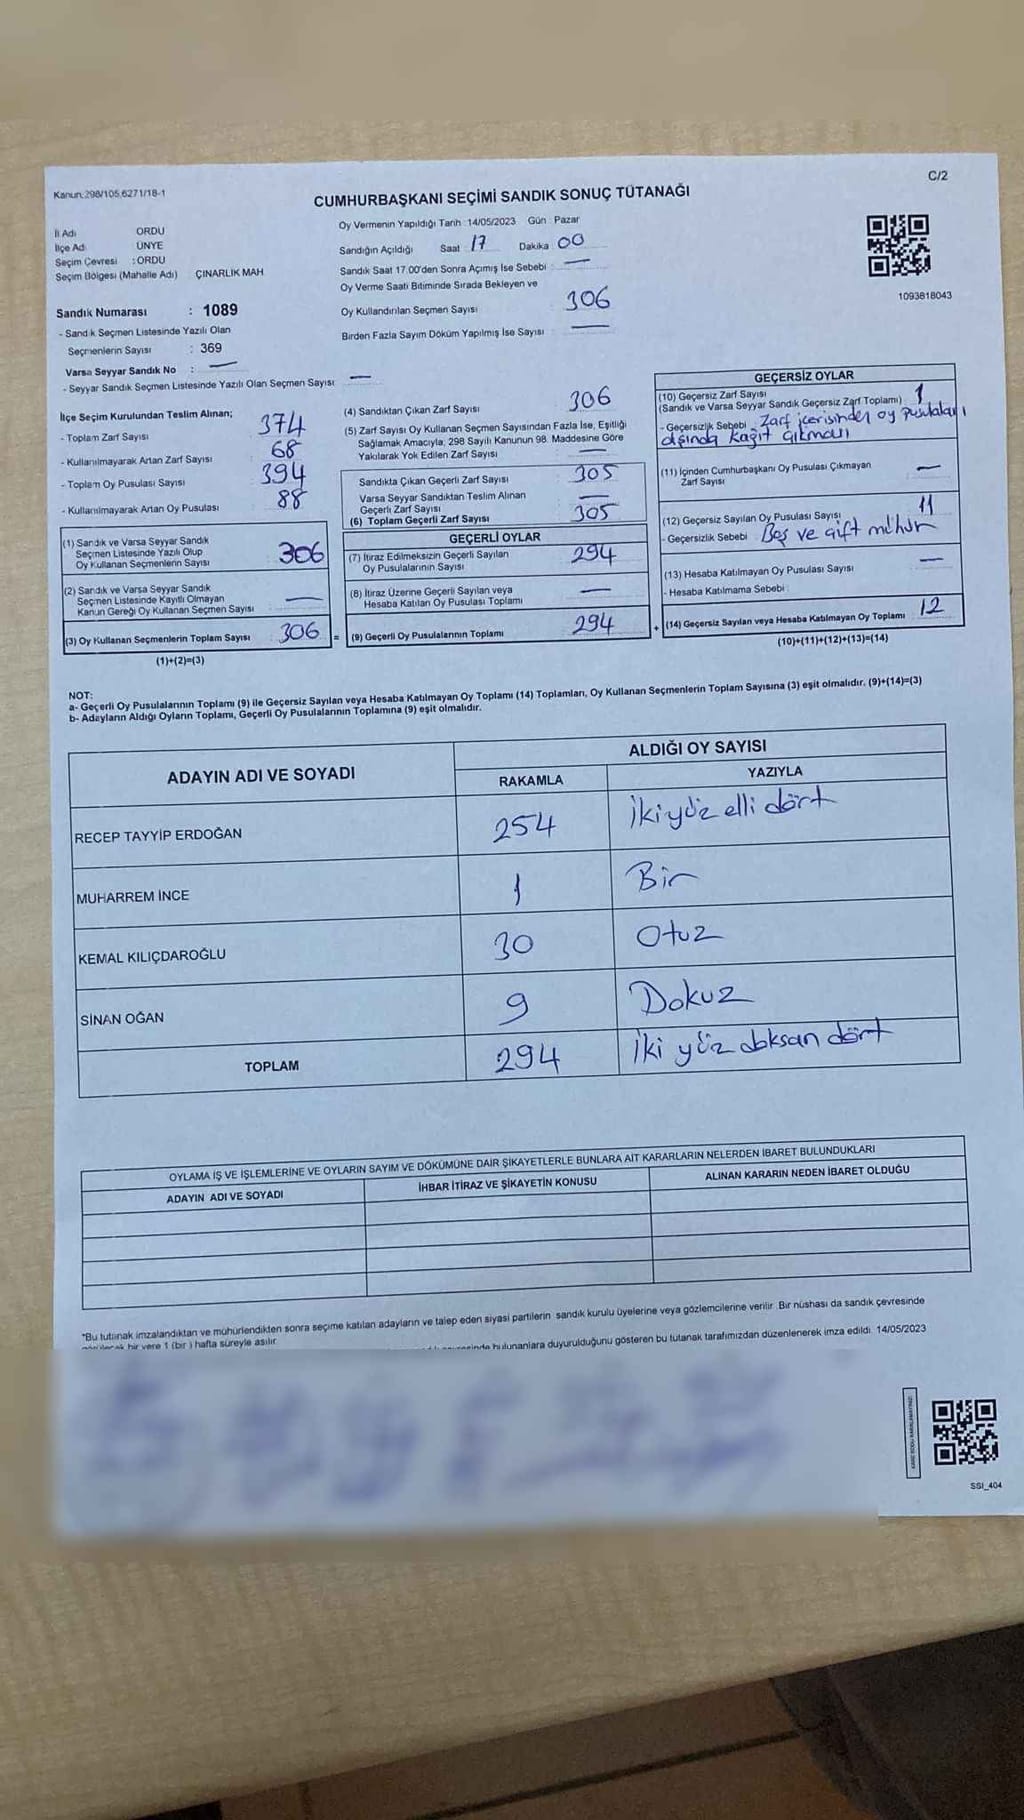 Kanun:298/105,6271/18-1
C/2
CUMHURBAŞKANI SEÇİMİ SANDIK SONUÇ TUTANAĞI
İl Adı ORDU
İlçe Ad ÜNYE
Seçim Çevresi : ORDU
Seçim Bölgesi (Mahalle Adı) ÇINARLIK MAH
Sandık Numarası : 1089
- Sandık Seçmen Listesinde Yazılı Olan
Seçmenlerin Sayısı : 369
Varsa Seyyar Sandık No : —
- Seyyar Sandık Seçmen Listesinde Yazılı Olan Seçmen Sayısı —
Oy Vermenin Yapıldığı Tarih : 14/05/2023 Gün : Pazar
Sandığın Açıldığı Saat 17 Dakika 00
Sandık Saat 17.00'den Sonra Açımış İse Sebebi : —
Oy Verme Saati Bitiminde Sırada Bekleyen ve
Oy Kullandırılan Seçmen Sayısı 306
Birden Fazla Sayım Döküm Yapılmış İse Sayısı —
1093818043
İlçe Seçim Kurulundan Teslim Alınan;
- Toplam Zarf Sayısı 374
- Kullanılmayarak Artan Zarf Sayısı 68
- Toplam Oy Pusulası Sayısı 394
- Kullanılmayarak Artan Oy Pusulası 88
(1) Sandık ve Varsa Seyyar Sandık
Seçmen Listesinde Yazılı Olup
Oy Kullanan Seçmenlerin Sayısı 306
(2) Sandık ve Varsa Seyyar Sandık
Seçmen Listesinde Kayıtlı Olmayan
Kanun Gereği Oy Kullanan Seçmen Sayısı —
(3) Oy Kullanan Seçmenlerin Toplam Sayısı 306 =
(1)+(2)=(3)
(4) Sandıktan Çıkan Zarf Sayısı 306
(5) Zarf Sayısı Oy Kullanan Seçmen Sayısından Fazla İse, Eşitliği
Sağlamak Amacıyla; 298 Sayılı Kanunun 98. Maddesine Göre
Yakılarak Yok Edilen Zarf Sayısı —
Sandıkta Çıkan Geçerli Zarf Sayısı 305
Varsa Seyyar Sandıktan Teslim Alınan
Geçerli Zarf Sayısı —
(6) Toplam Geçerli Zarf Sayısı 305
GEÇERLİ OYLAR
(7) İtiraz Edilmeksizin Geçerli Sayılan
Oy Pusulalarının Sayısı 294
(8) İtiraz Üzerine Geçerli Sayılan veya
Hesaba Katılan Oy Pusulası Toplamı —
(9) Geçerli Oy Pusulalarının Toplamı 294 +
GEÇERSİZ OYLAR
(10) Geçersiz Zarf Sayısı
(Sandık ve Varsa Seyyar Sandık Geçersiz Zarf Toplamı) : 1
- Geçersizlik Sebebi : Zarf içerisinden oy pusulaları
dışında kağıt çıkması
(11) İçinden Cumhurbaşkanı Oy Pusulası Çıkmayan
Zarf Sayısı —
(12) Geçersiz Sayılan Oy Pusulası Sayısı 11
- Geçersizlik Sebebi Boş ve çift mühür
(13) Hesaba Katılmayan Oy Pusulası Sayısı —
- Hesaba Katılmama Sebebi
(14) Geçersiz Sayılan veya Hesaba Katılmayan Oy Toplamı 12
(10)+(11)+(12)+(13)=(14)
NOT:
a- Geçerli Oy Pusulalarının Toplamı (9) ile Geçersiz Sayılan veya Hesaba Katılmayan Oy Toplamı (14) Toplamları, Oy Kullanan Seçmenlerin Toplam Sayısına (3) eşit olmalıdır. (9)+(14)=(3)
b- Adayların Aldığı Oyların Toplamı, Geçerli Oy Pusulalarının Toplamına (9) eşit olmalıdır.
ADAYIN ADI VE SOYADI ALDIĞI OY SAYISI
RAKAMLA YAZIYLA
RECEP TAYYİP ERDOĞAN 254 İkiyüz elli dört
MUHARREM İNCE 1 Bir
KEMAL KILIÇDAROĞLU 30 Otuz
SİNAN OĞAN 9 Dokuz
TOPLAM 294 İki yüz doksan dört
OYLAMA İŞ VE İŞLEMLERİNE VE OYLARIN SAYIM VE DÖKÜMÜNE DAİR ŞİKAYETLERLE BUNLARA AİT KARARLARIN NELERDEN İBARET BULUNDUKLARI
ADAYIN ADI VE SOYADI İHBAR İTİRAZ VE ŞİKAYETİN KONUSU ALINAN KARARIN NEDEN İBARET OLDUĞU
*Bu tutanak imzalandıktan ve mühürlendikten sonra seçime katılan adayların ve talep eden siyasi partilerin sandık kurulu üyelerine veya gözlemcilerine verilir. Bir nüshası da sandık çevresinde
bir yere 1 (bir) hafta süreyle asılır.
bulunanlara duyurulduğunu gösteren bu tutanak tarafımızdan düzenlenerek imza edildi. 14/05/2023
SSI_404